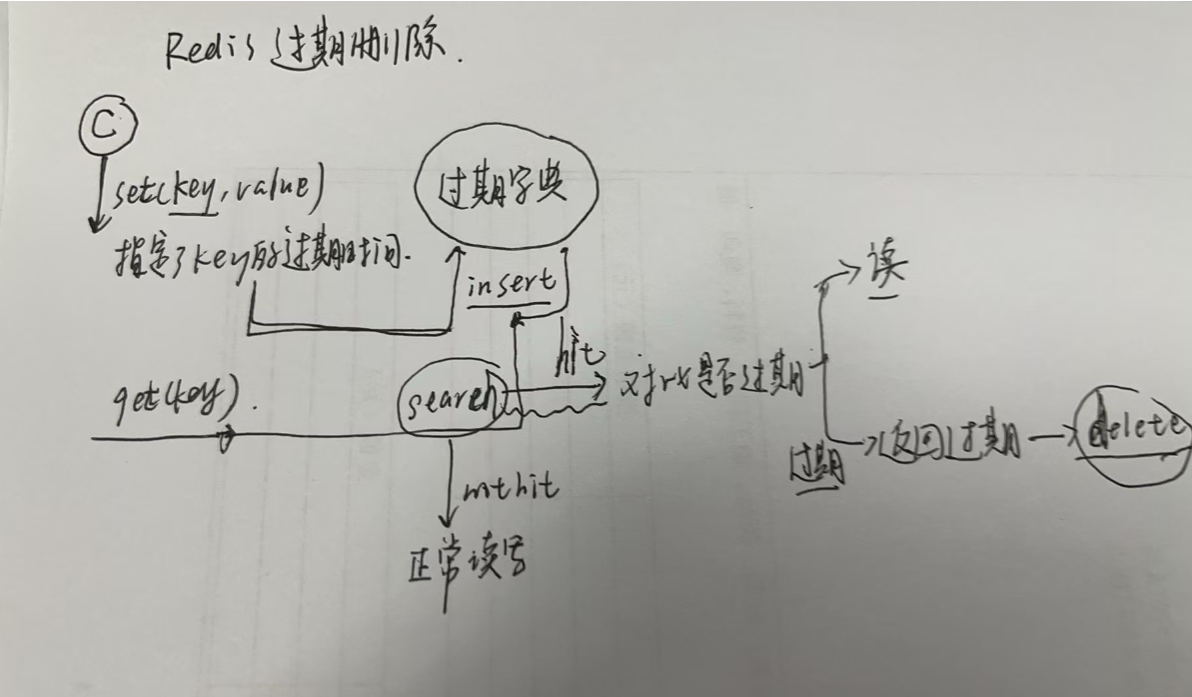 Redis 过期删除.
C
set(key, value)
指定了key的过期时间.
过期字典
insert
get(key).
search
hit
对比是否过期
读
过期
返回过期
delete
not hit
正常读写